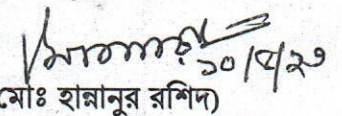 ১০/৫/২৩
(মোঃ হান্নানুর রশিদ)